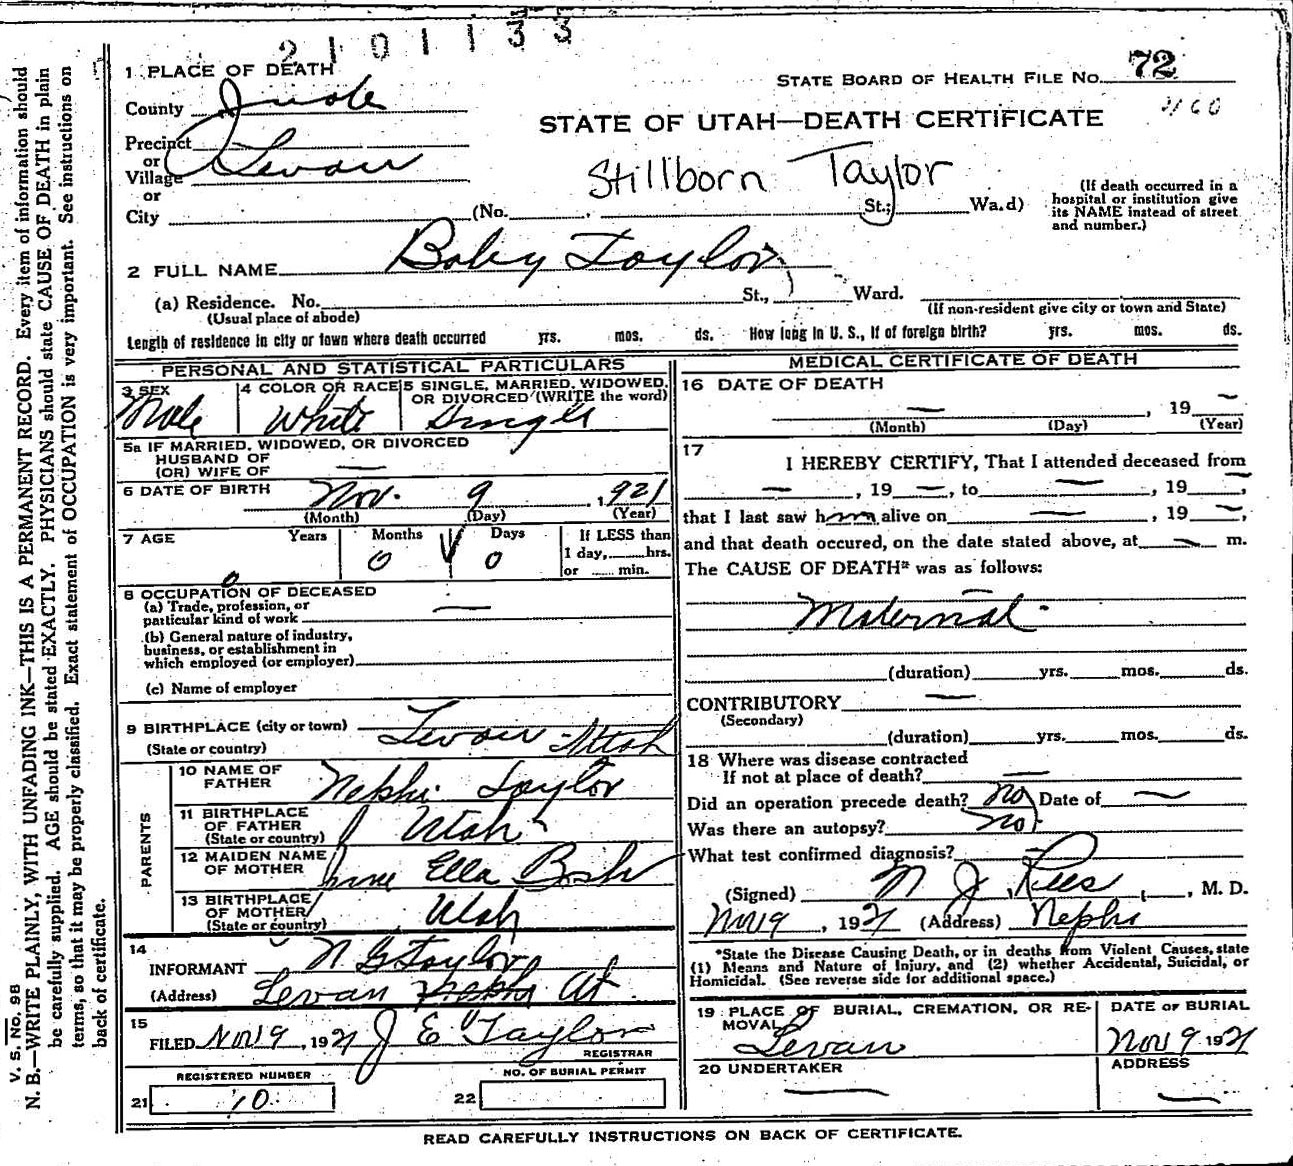 2101133
1 PLACE OF DEATH
STATE BOARD OF HEALTH FILE No. 72
County Juab
2160
STATE OF UTAH—DEATH CERTIFICATE
Precinct
or
Village Levan
Stillborn Taylor
or
City (No. St.; Wa.d)
(If death occurred in a
hospital or institution give
its NAME instead of street
and number.)
2 FULL NAME Baby Taylor
(a) Residence. No. St., Ward.
(Usual place of abode)
(If non-resident give city or town and State)
Length of residence in city or town where death occurred yrs. mos. ds. How long in U. S., if of foreign birth? yrs. mos. ds.
PERSONAL AND STATISTICAL PARTICULARS
3 SEX
Male
4 COLOR OR RACE
White
5 SINGLE, MARRIED, WIDOWED,
OR DIVORCED (WRITE the word)
Single
5a IF MARRIED, WIDOWED, OR DIVORCED
HUSBAND OF
(OR) WIFE OF —
6 DATE OF BIRTH Nov. 9, 1921
(Month) (Day) (Year)
7 AGE Years Months Days If LESS than
1 day, hrs.
or min.
0 0 0
8 OCCUPATION OF DECEASED
(a) Trade, profession, or
particular kind of work —
(b) General nature of industry,
business, or establishment in
which employed (or employer)
(c) Name of employer
9 BIRTHPLACE (city or town) Levan Utah
(State or country)
PARENTS
10 NAME OF
FATHER Nephi Taylor
11 BIRTHPLACE
OF FATHER
(State or country) Utah
12 MAIDEN NAME
OF MOTHER Ella
13 BIRTHPLACE
OF MOTHER
(State or country) Utah
14
INFORMANT N G Taylor
(Address) Levan Nephi Ut
15
FILED Nov 9, 1921 J E Taylor
REGISTRAR
REGISTERED NUMBER
21 10
NO. OF BURIAL PERMIT
22
MEDICAL CERTIFICATE OF DEATH
16 DATE OF DEATH
— , 19 —
(Month) (Day) (Year)
17
I HEREBY CERTIFY, That I attended deceased from
— , 19 —, to — , 19 —,
that I last saw him alive on — , 19 —,
and that death occured, on the date stated above, at — m.
The CAUSE OF DEATH* was as follows:
—
Maternal
(duration) yrs. mos. ds.
CONTRIBUTORY —
(Secondary)
(duration) yrs. mos. ds.
18 Where was disease contracted
If not at place of death? —
Did an operation precede death? No Date of —
Was there an autopsy? No
What test confirmed diagnosis? —
(Signed) N J Rees, M. D.
Nov 9, 1921 (Address) Nephi
*State the Disease Causing Death, or in deaths from Violent Causes, state
(1) Means and Nature of Injury, and (2) whether Accidental, Suicidal, or
Homicidal. (See reverse side for additional space.)
19 PLACE OF BURIAL, CREMATION, OR RE-
MOVAL
Levan
DATE OF BURIAL
Nov 9 1921
20 UNDERTAKER
—
ADDRESS
—
READ CAREFULLY INSTRUCTIONS ON BACK OF CERTIFICATE.
V. S. No. 98
N. B.—WRITE PLAINLY, WITH UNFADING INK—THIS IS A PERMANENT RECORD. Every item of information should
be carefully supplied. AGE should be stated EXACTLY. PHYSICIANS should state CAUSE OF DEATH in plain
terms, so that it may be properly classified. Exact statement of OCCUPATION is very important. See instructions on
back of certificate.